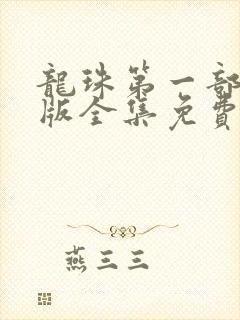 龍珠第一部
版全集免費
燕三三